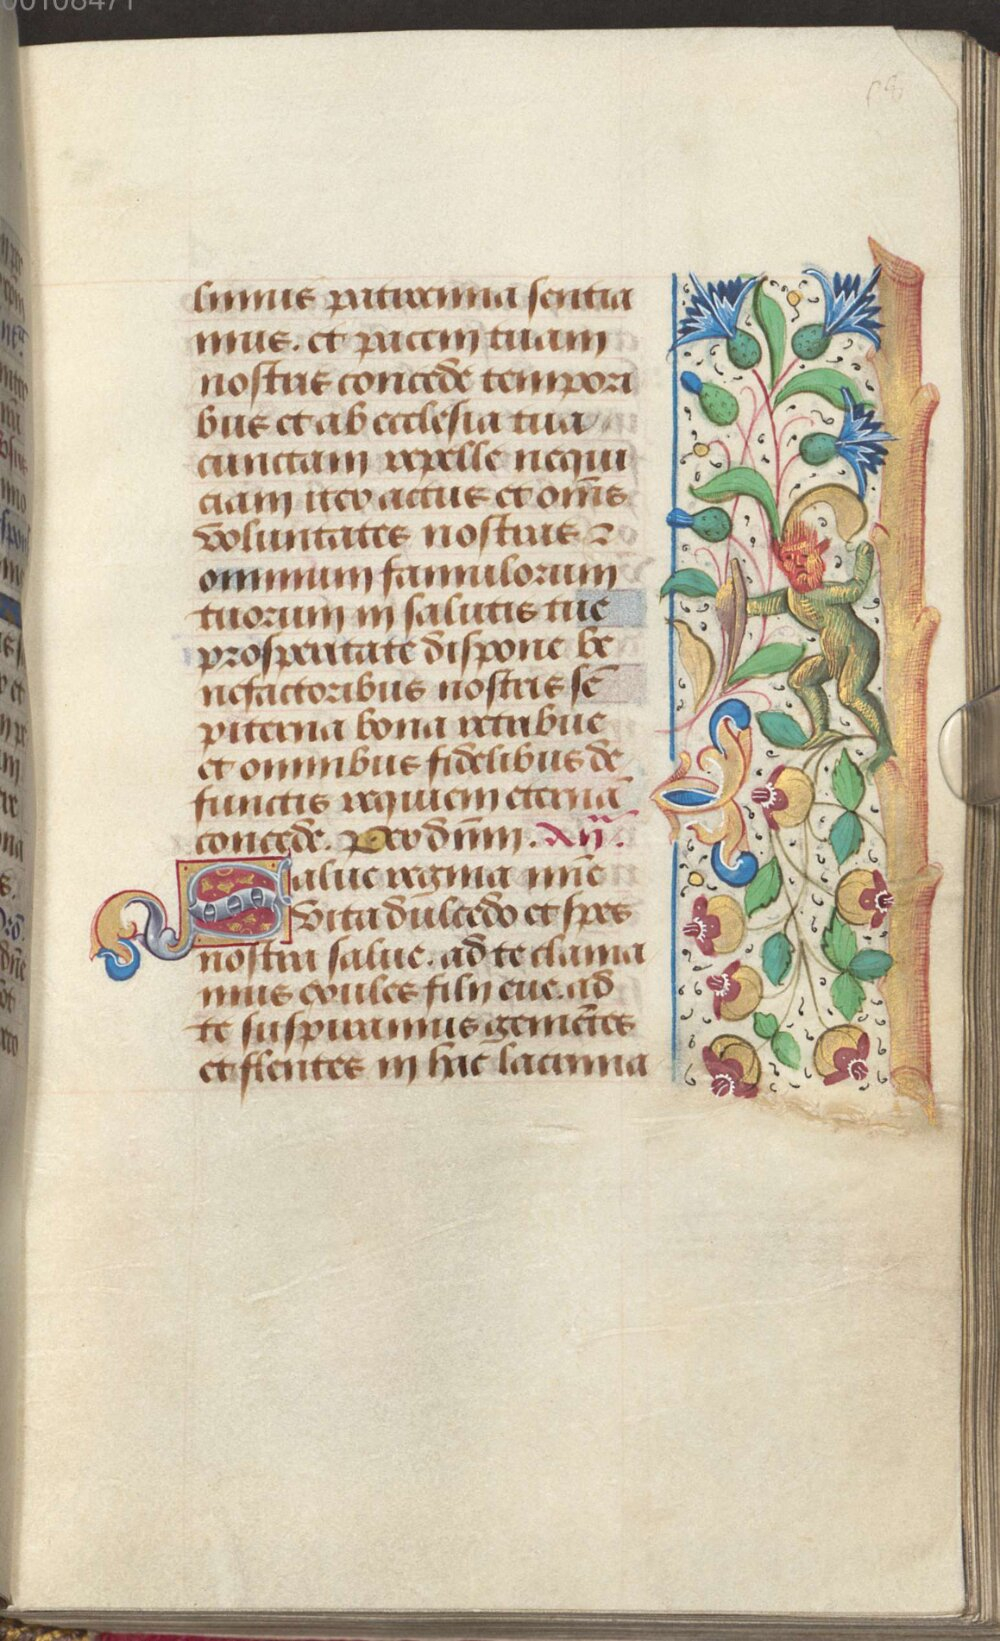 00108471
limus patrocinia sentia
mus. et pacem tuam
nostris concede tempori
bus et ab ecclesia tua
cunctam repelle nequi
ciam iter actus et om̅s
voluntates nostras ⁊
omnium famulorum
tuorum in salutis tue
prosperitate dispone be
nefactoribus nostris se̅
piterna bona retribue
et omnibus fidelibus de
functis requiem eterna̅
concede. Per dn̅m.
Salue regina mi̅e
vita dulcedo et spes
nostra salue. ad te clama
mus exules filij eue. ad
te suspiramus geme̅tes
et flentes in hac lacrima